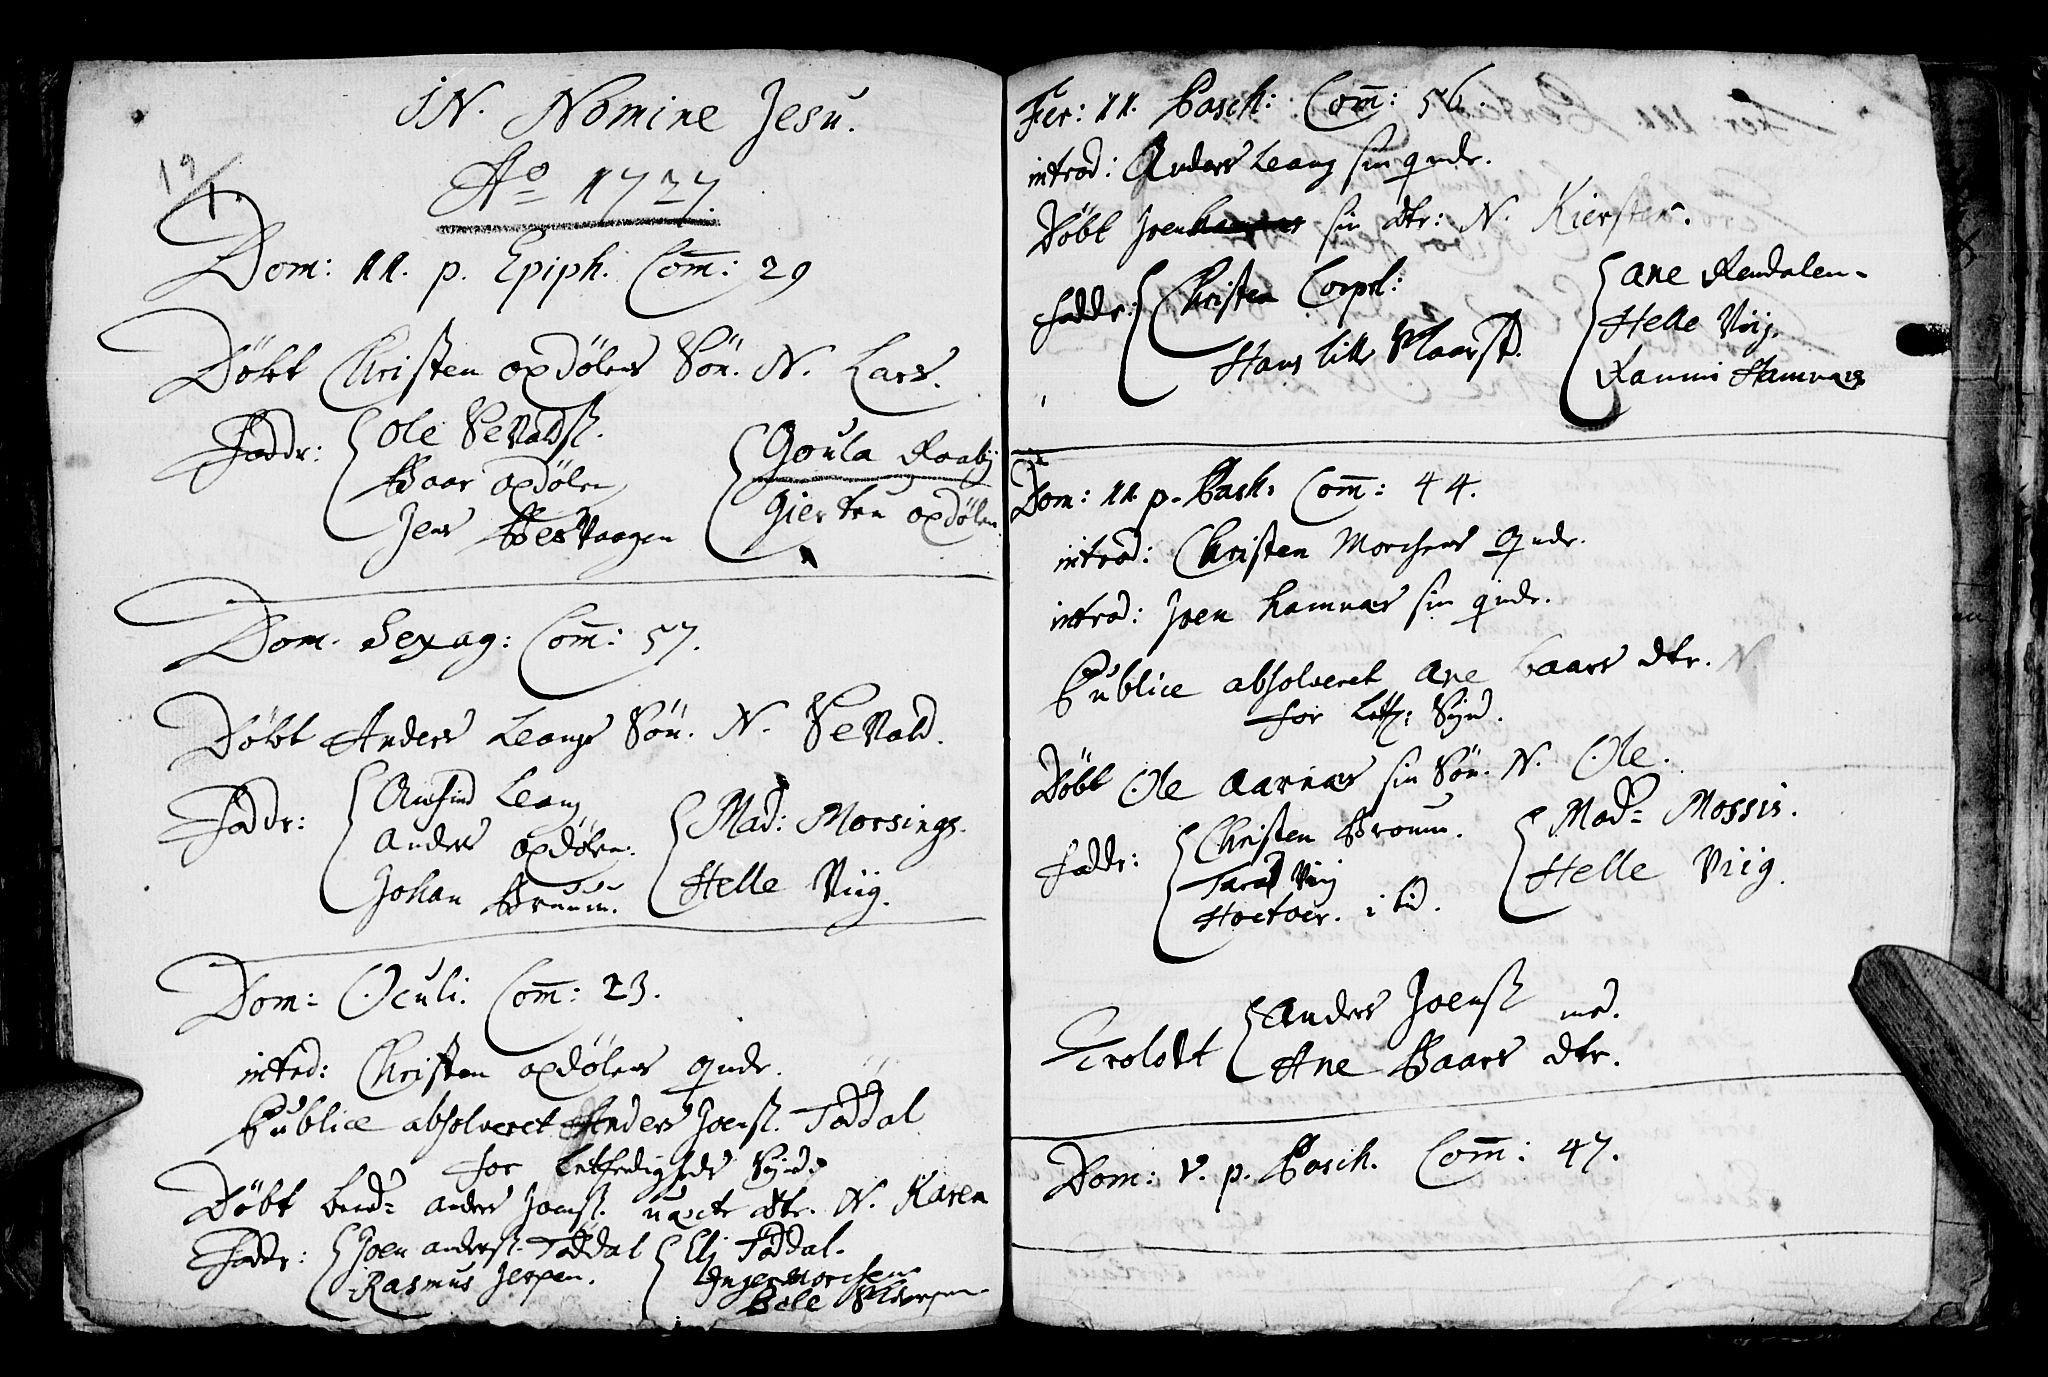 IN. Nomine Jesu.
19/1
Ao 1727.
Dom: 11. p. Epiph. Com̄: 29
Döbt Christen opdölens Sön. N. Lars.
Faddr: Ole Sevalds.
Baar opdölen
Jens
Goula Raabÿ
Giertru opdölen
Dom. Sexag: Com̄: 57.
Döbt Anders Leangs Sön. N. Sevald.
Faddr: Amfind Leang
Anders opdölen.
Johan Bruun.
Mad: Morsings.
Helle Viig.
Dom: Oculi. Com̄: 23.
introd: Christen opdölens qvde.
Publice absolveret Anders Joens. Toddal
for Letferdigheds Synd.
Döbt bemd. anders Joens. uægte dtr. N. Karen
Faddr: Joen anders. Toddal
Rasmus Jespen.
Elj Toddal.
Inger Morchen
Bele
Fer: 11. Pasch: Com̄: 56.
introd: Anders Leang sin qvde.
Döbt Joen hamnes sin dtr: N. Kiersten.
Faddr: Christen Corprl:
Hans lille
Ane Rendalen
Helle Viig.
Rammi Hamnes
Dom: 11. p. Pask: Com̄: 44.
introd: Christen Morchens qvde.
introd: Joen hamnes sin qvde.
Publice absolveret Ane baars dtr. N.
for Letf: Synd.
Döbt Ole Aarnes sin Sön. N. Ole.
Faddr: Christen Bromm.
Tarald Viig
i lid.
Mad: Mossin.
Helle Viig.
Trolovt Anders Joens. med.
Ane Baars dtr.
Dom: V. p. Pasch. Com̄: 47.